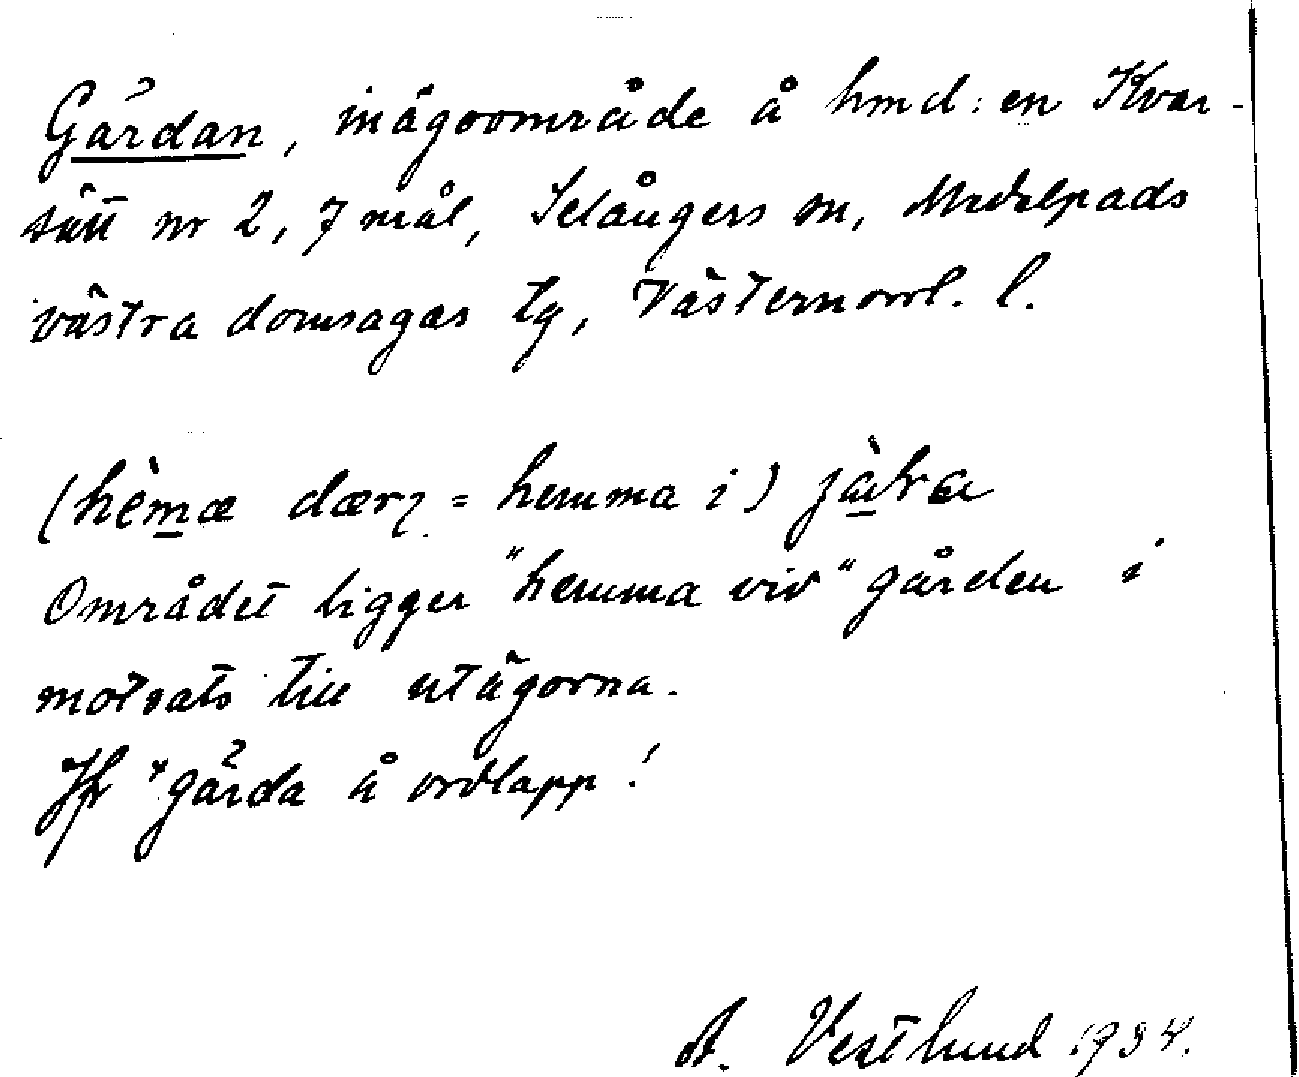 Gärdan, inägoområde å hmd:en Kvar-
sätt nr 2, 7 mål, Selångers sn, Medelpads
västra domsagas tg, Västernorrl. l.
(hèmæ dær = hemma i)
Området ligger "hemma vid" gården i
motsats till utägorna.
Jfr gärda å ordlapp!
A. Vestlund 1934.